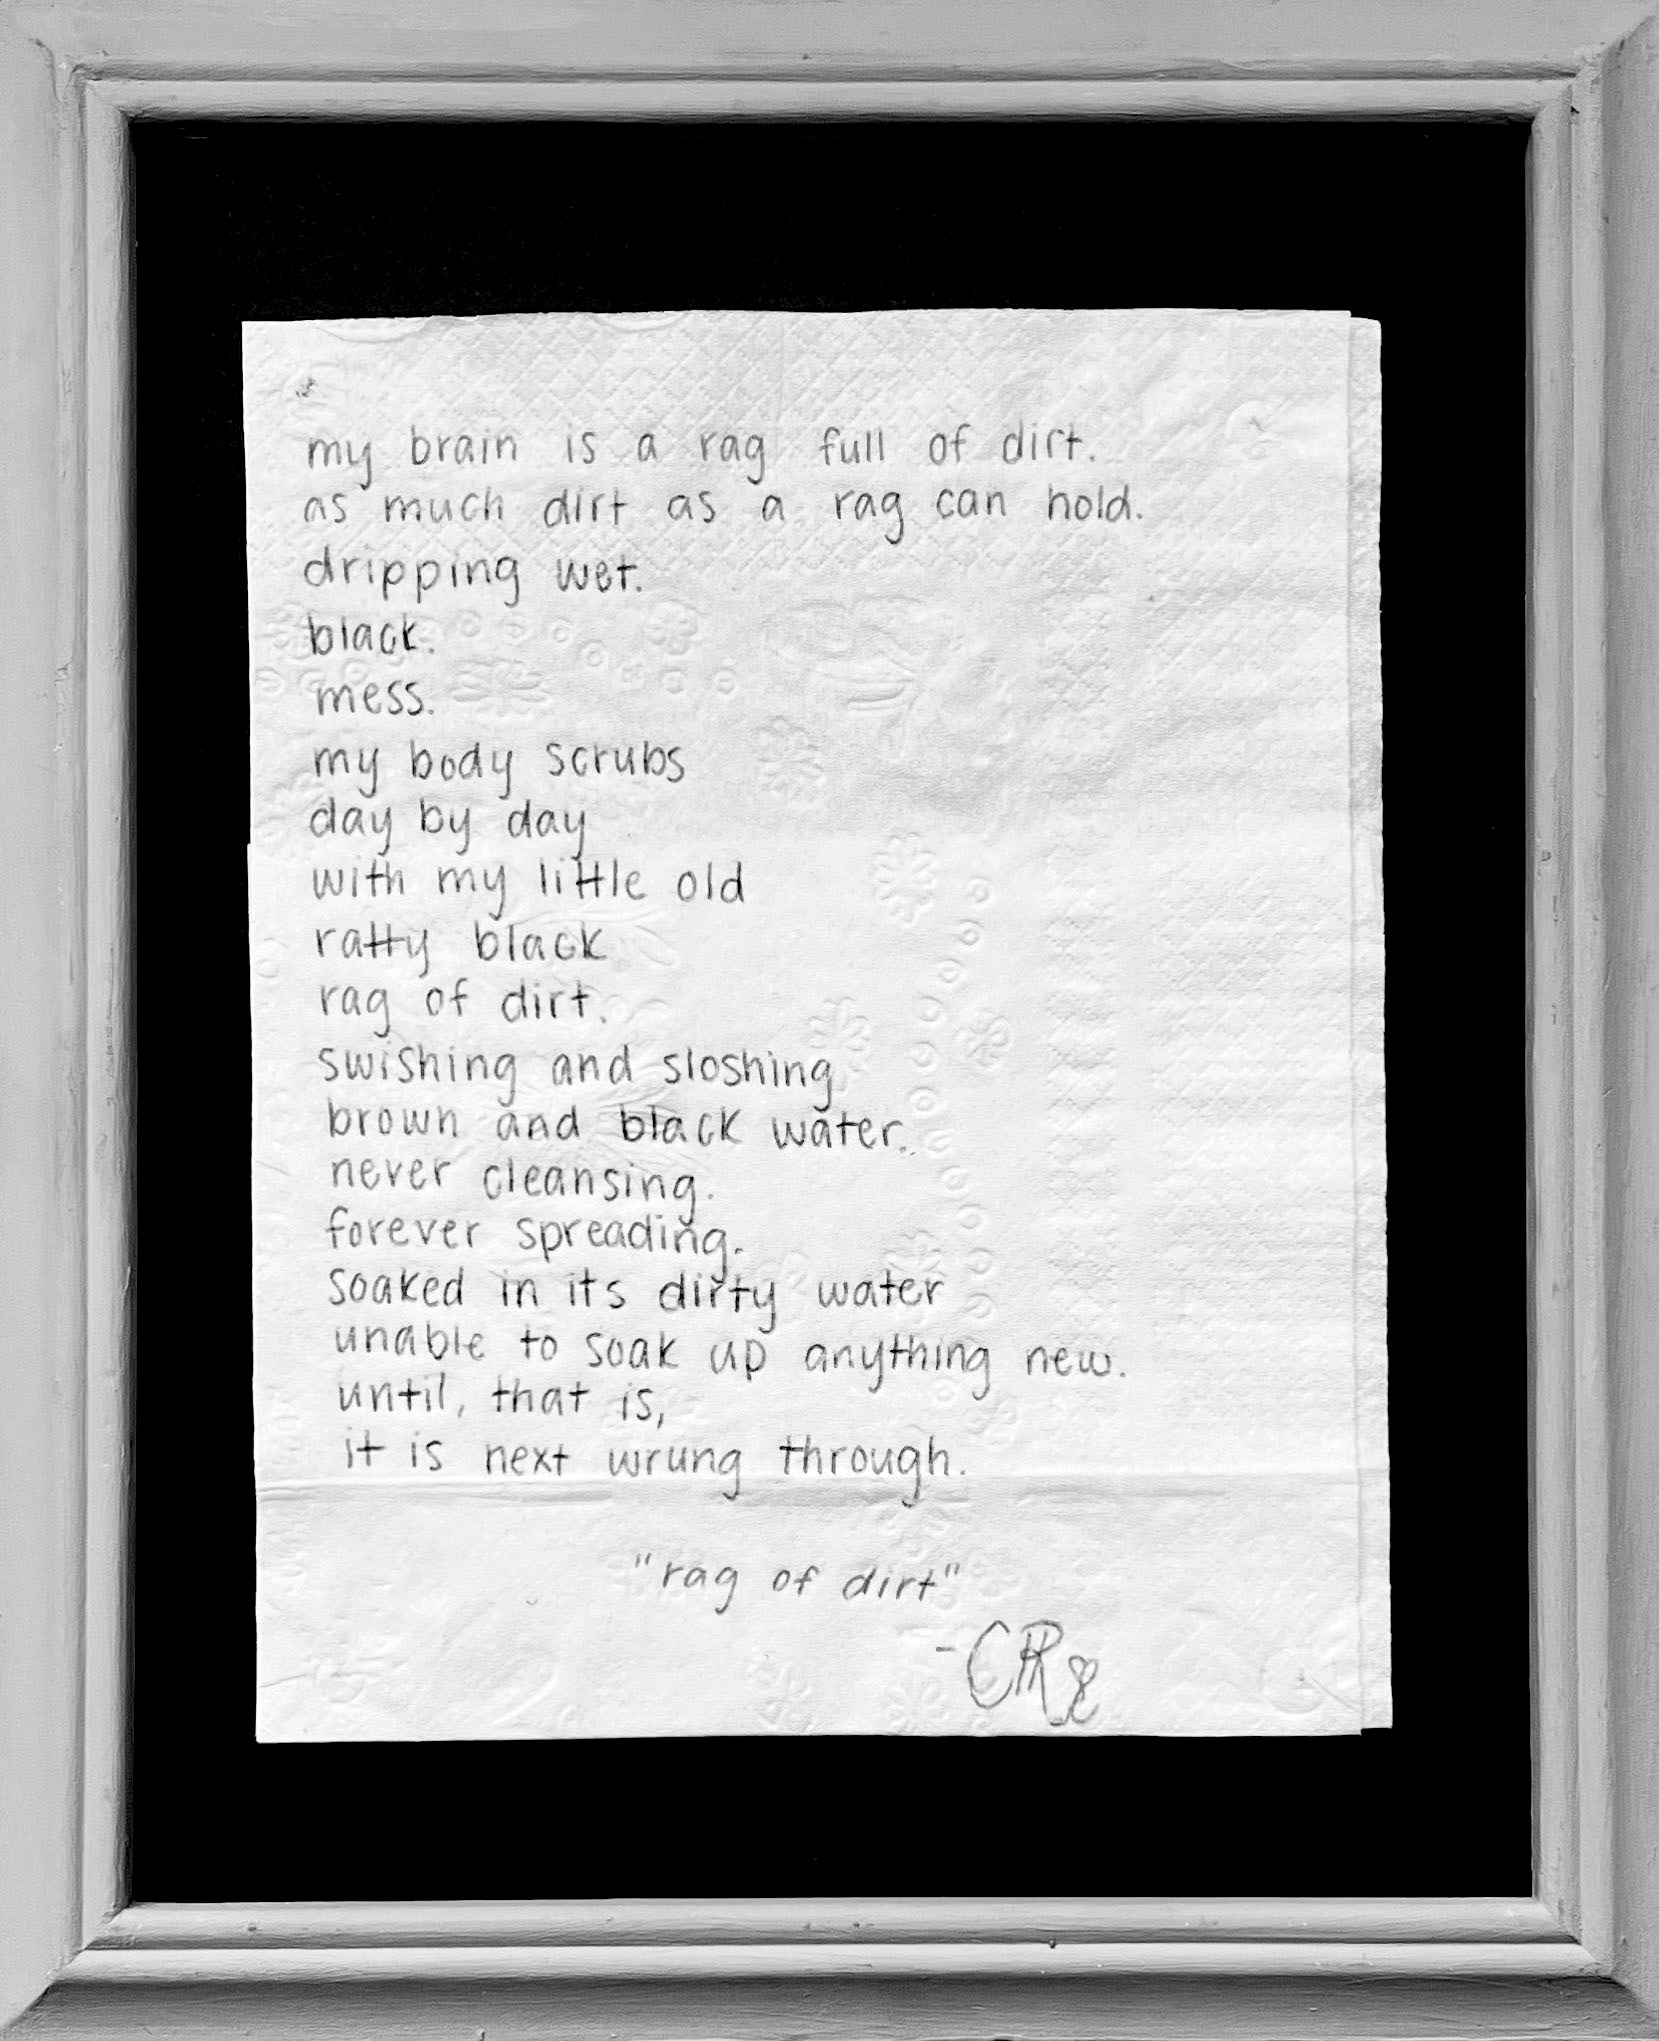 my brain is a rag full of dirt.
as much dirt as a rag can hold.
dripping wet.
black.
mess.
my body scrubs
day by day
with my little old
ratty black
rag of dirt.
swishing and sloshing
brown and black water.
never cleansing.
forever spreading.
soaked in its dirty water
unable to soak up anything new.
until, that is,
it is next wrung through.
"rag of dirt"